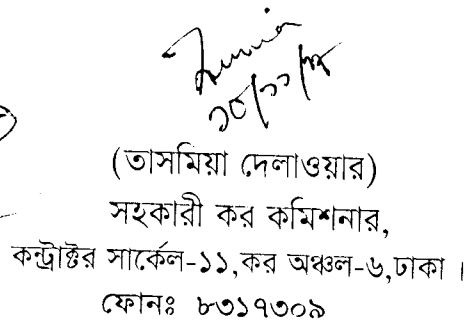 (তাসমিয়া দেলাওয়ার)
সহকারী কর কমিশনার,
কন্ট্রাক্টর সার্কেল-১১,কর অঞ্চল-৬,ঢাকা ।
ফোনঃ ৮৩১৭৩০৯